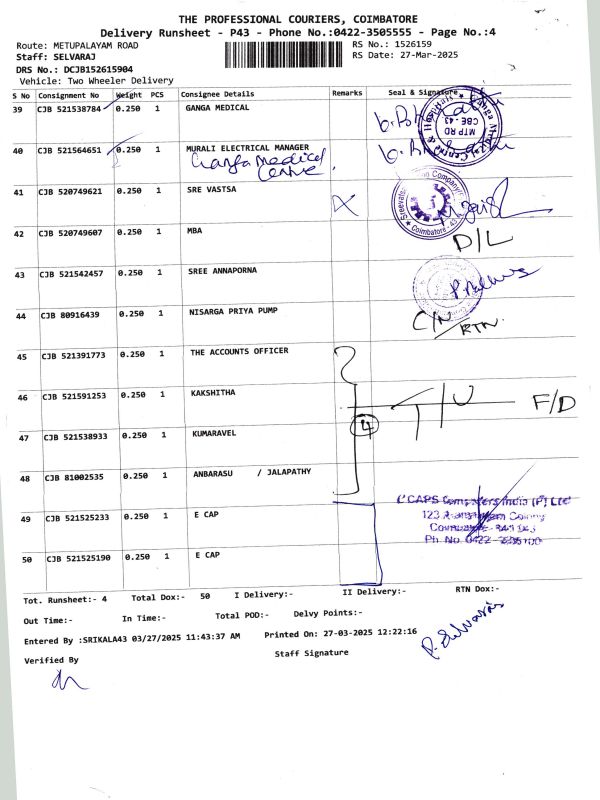 THE PROFESSIONAL COURIERS, COIMBATORE
Delivery Runsheet - P43 - Phone No.:0422-3505555 - Page No.:4
Route: METUPALAYAM ROAD RS No.: 1526159
Staff: SELVARAJ RS Date: 27-Mar-2025
DRS No.: DCJB152615904
Vehicle: Two Wheeler Delivery
S No Consignment No Weight PCS Consignee Details Remarks Seal & Signature
39 CJB 521538784 0.250 1 GANGA MEDICAL
MTP RD
CBE-43
40 CJB 521564651 0.250 1 MURALI ELECTRICAL MANAGER
Ganga Medical
Centre
41 CJB 520749621 0.250 1 SRE VASTSA
Coimbatore - 43
42 CJB 520749607 0.250 1 MBA D/L
43 CJB 521542457 0.250 1 SREE ANNAPORNA
44 CJB 80916439 0.250 1 NISARGA PRIYA PUMP C/N RTN.
45 CJB 521391773 0.250 1 THE ACCOUNTS OFFICER
46 CJB 521591253 0.250 1 KAKSHITHA F/D
4
47 CJB 521538933 0.250 1 KUMARAVEL
48 CJB 81002535 0.250 1 ANBARASU / JALAPATHY
49 CJB 521525233 0.250 1 E CAP
CAPS Computers India (P) Ltd
50 CJB 521525190 0.250 1 E CAP
Tot. Runsheet:- 4 Total Dox:- 50 I Delivery:- II Delivery:- RTN Dox:-
Out Time:- In Time:- Total POD:- Delvy Points:-
Entered By :SRIKALA43 03/27/2025 11:43:37 AM Printed On: 27-03-2025 12:22:16
Verified By Staff Signature
P. Selvaraj